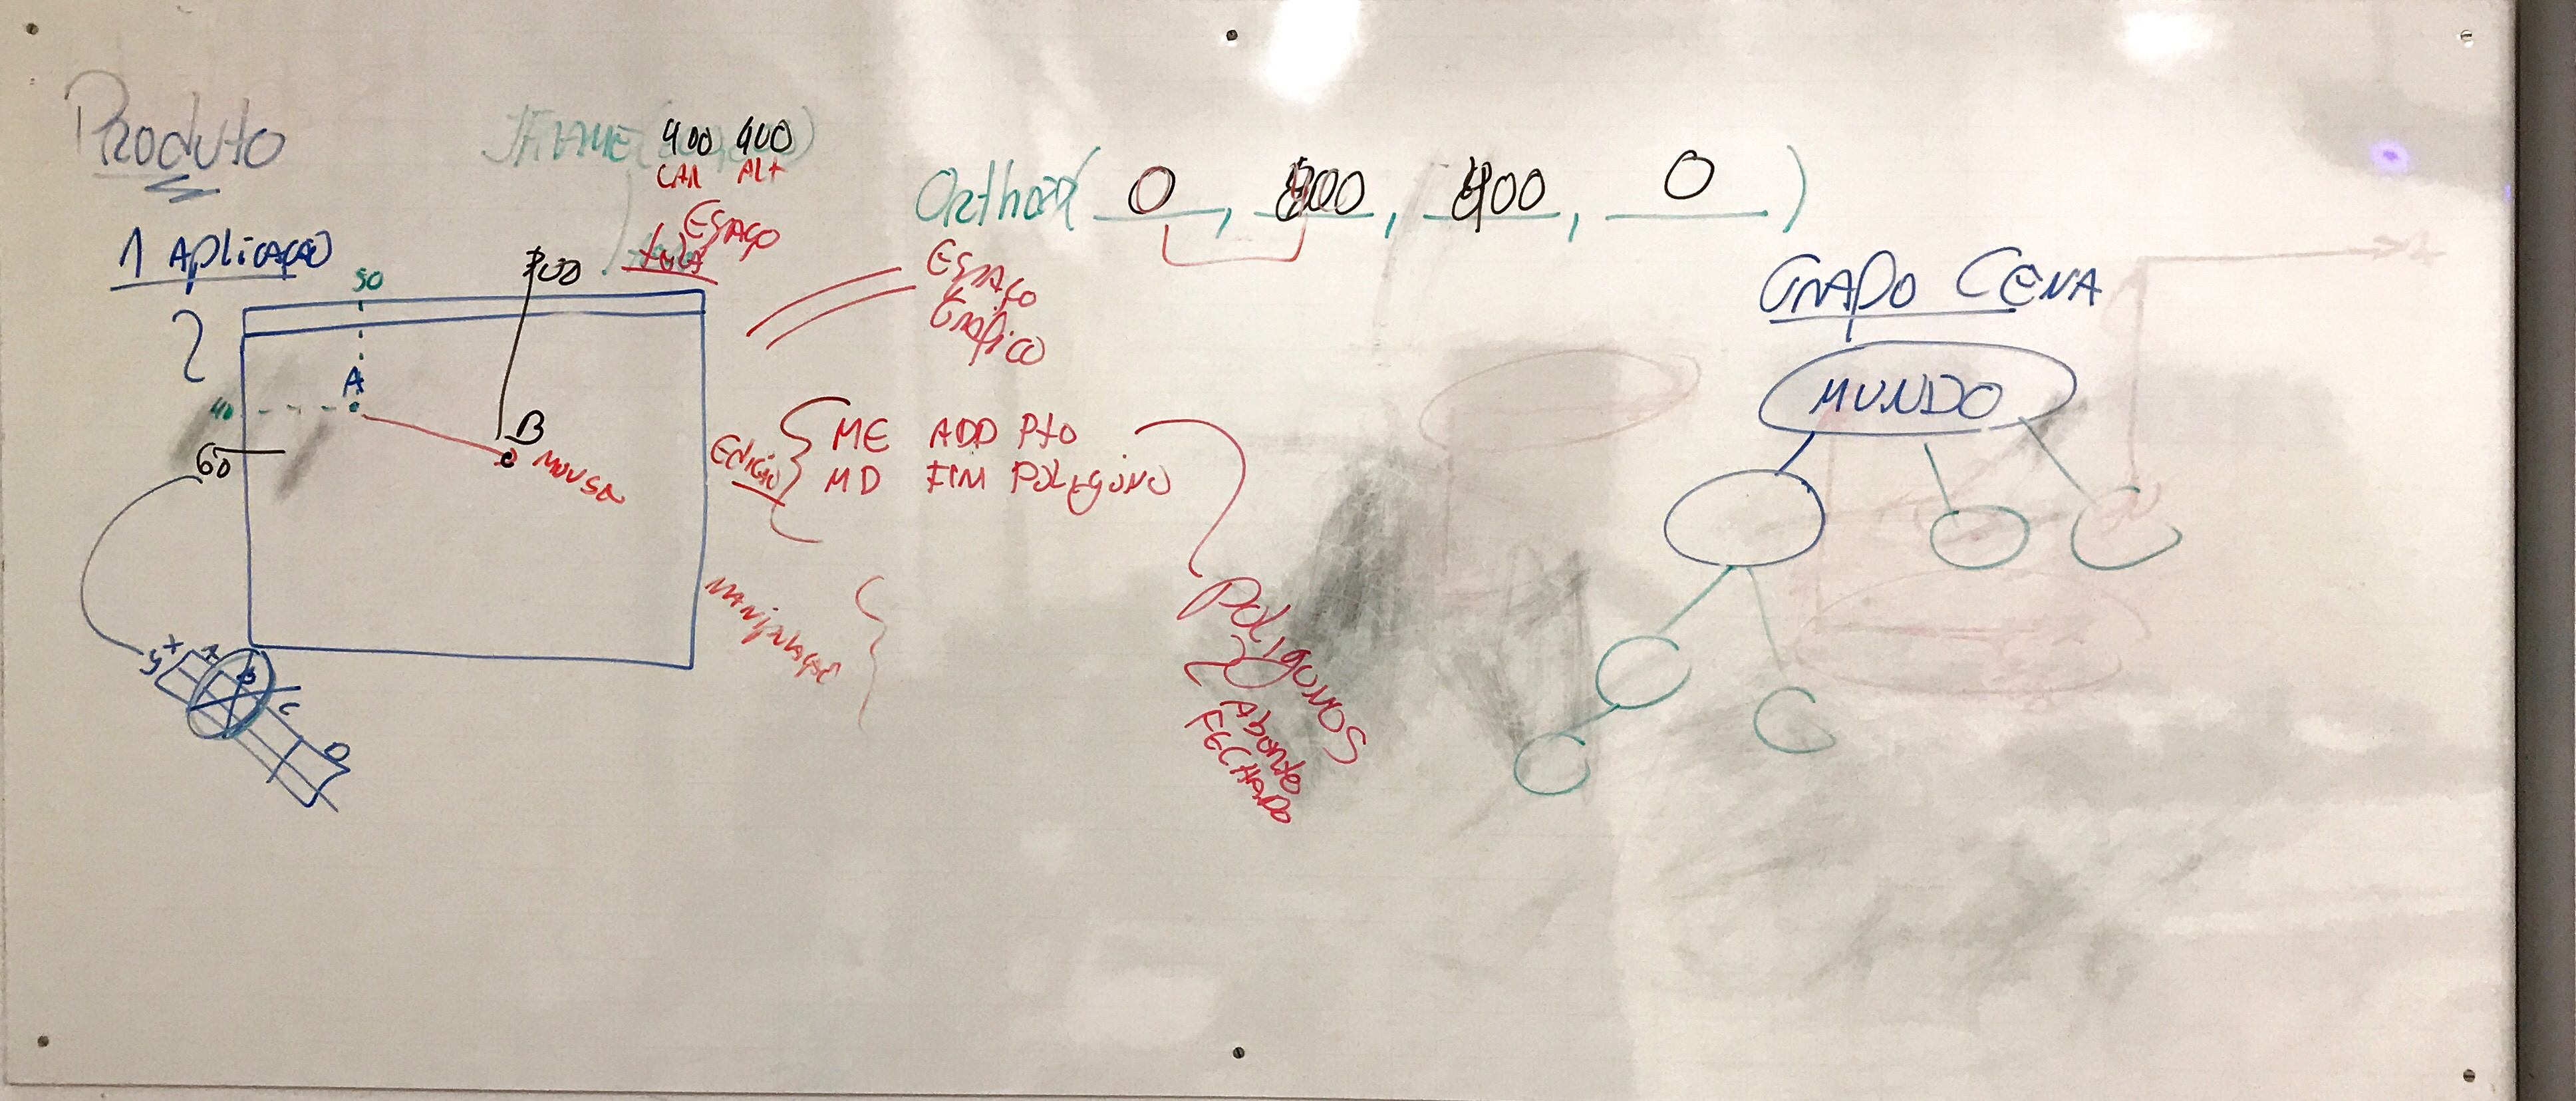 Produto
JFRAME(400 400)
LAR ALT
ESPAÇO
TELA
1 APLICAÇÃO
50
A
40
60
B
MOUSE
Ortho2D( 0 , 800 , 400 , 0 )
ESPAÇO
Gráfico
EDIÇÃO
ME ADD PTO
MD FIM POLÍGONO
MANIPULAÇÃO
POLÍGONOS
Aberto
FECHADO
GRAFO CENA
MUNDO
X
Y
D